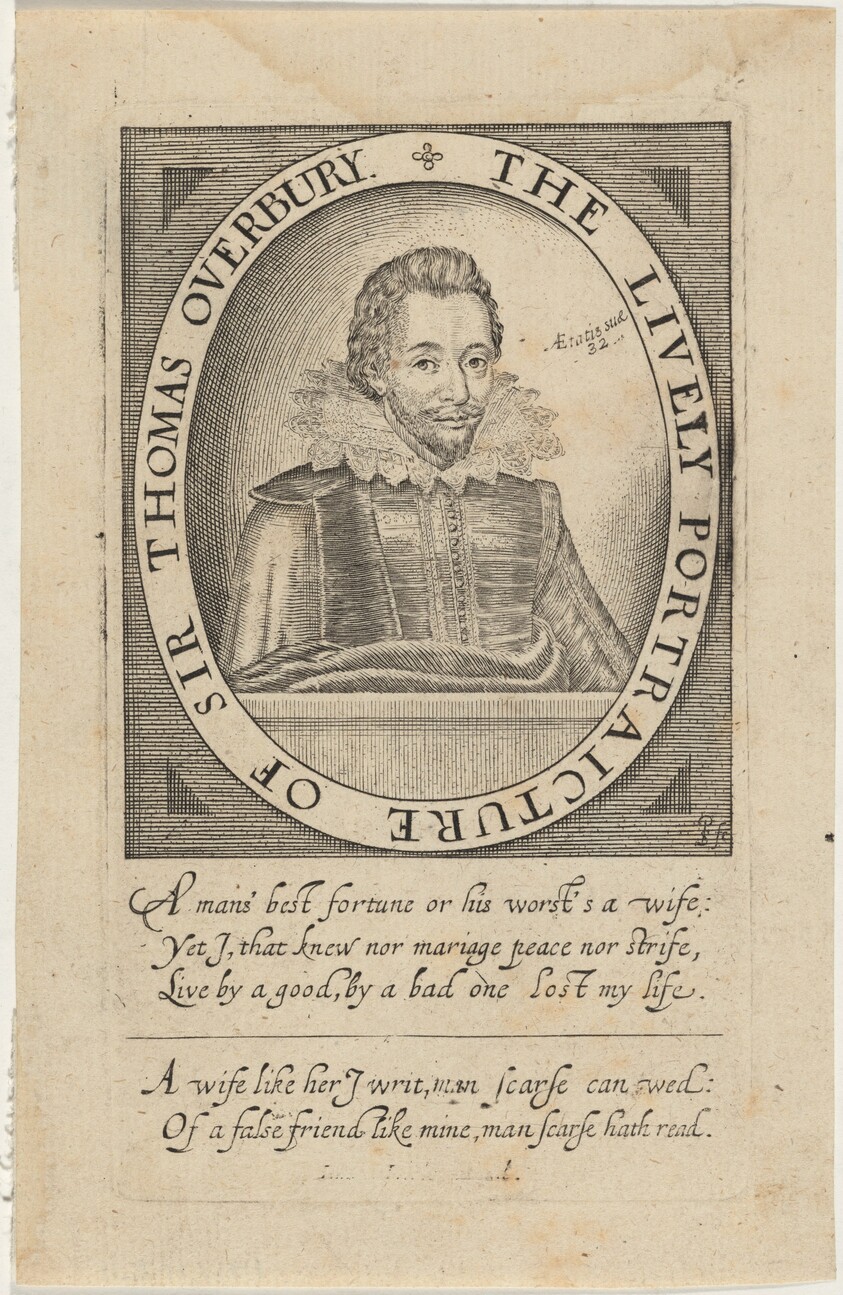 THE LIVELY PORTRAICTURE OF SIR THOMAS OVERBURY.
Ætatis suæ
32
A mans best fortune or his worst's a wife:
Yet I, that knew nor mariage peace nor strife,
Live by a good, by a bad one lost my life.
A wife like her I writ, man scarse can wed:
Of a false friend like mine, man scarse hath read.